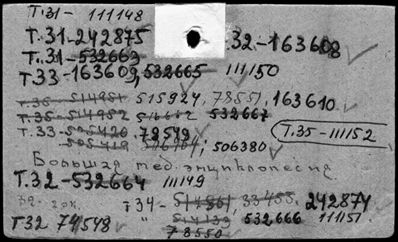 Т.31- 111148
Т.31-242875 Т.32-163608
Т.31-532663
Т33-163609, 532665 111150
Т.35-514951 515924, 78551, 163610
Т.35-514952 532667
Т.33-505420 79549 Т.35-111152
505419 ; 506380
Большая мед. энциклопедия
Т.32-532664 111149
т34- 33455. 242874
Т32 74548 " 532666 111151
78550